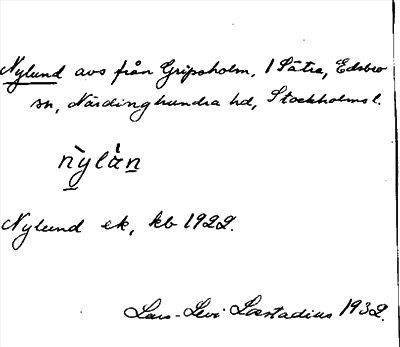 Nylund avs från Gripsholm, 1 Sätra, Edsbro
sn, Närdinghundra hd, Stockholms l.
nylån
Nylund ek, kb 1922.
Lars-Levi Læstadius 1932.